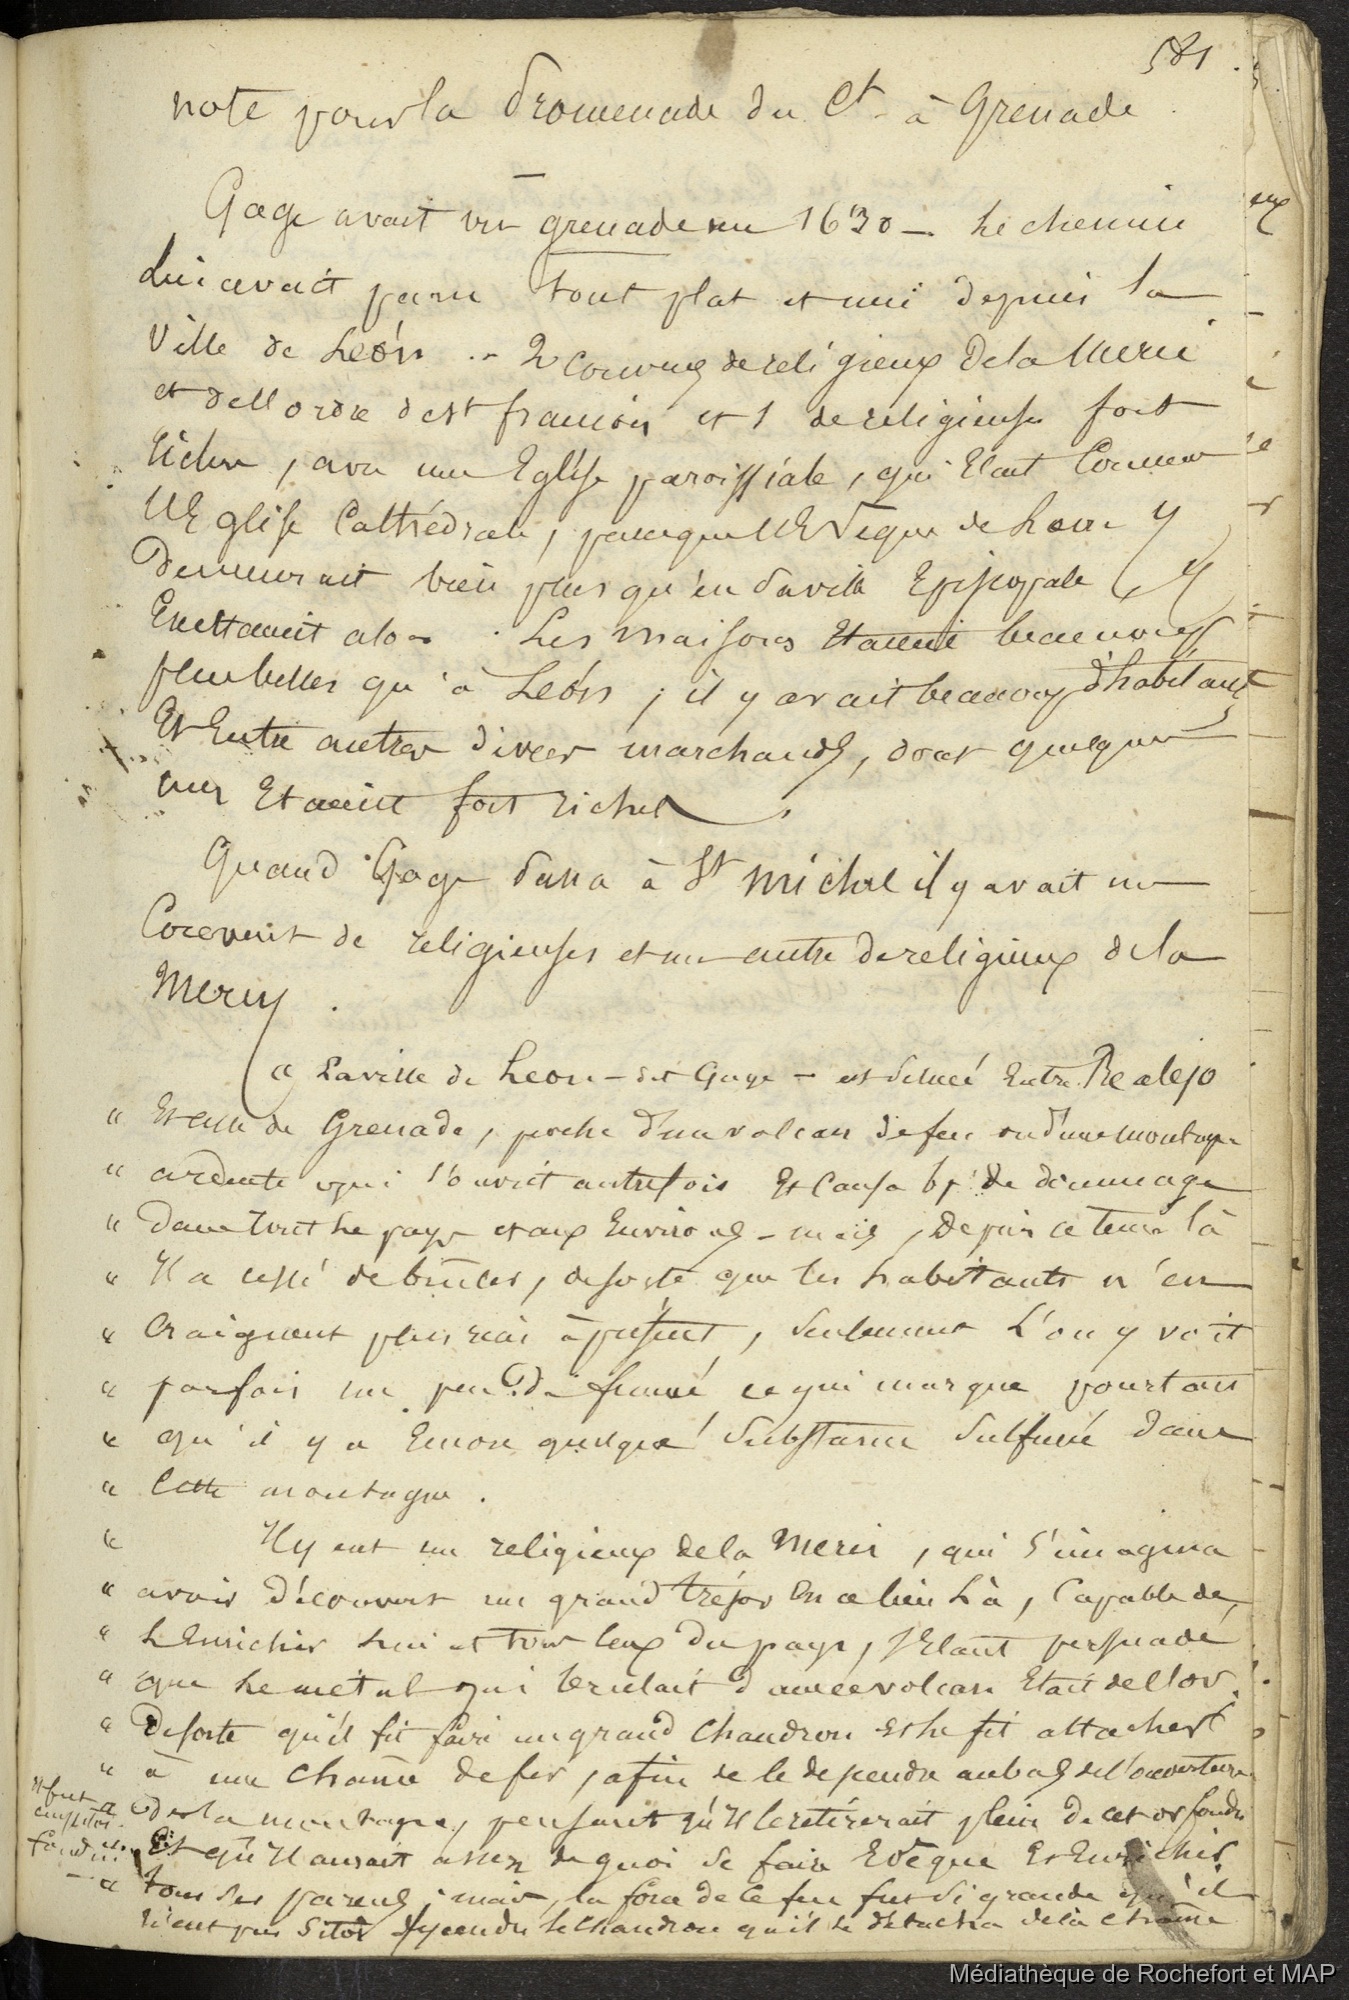 581
note pour la Promenade du Ct. à Grenade
Gage avait vu grenade en 1630 - le chemin
Lui avait paru tout plat et uni depuis la
Ville de Leòn .. 2 couvens de religieux de la Merci
et de l'ordre de St françois et 1 de religieuses fort
riches, avec une Eglise paroissiale, qui Etait Comme
l'Eglise Cathédrale, parceque l'Evêque de Leon y
Demeurait bien plus qu'en sa ville Episcopale (
alors . Les maisons Etaient beaucoup
plus belles qu'à Leòn ; il y avait beaucoup d'habitants
Et Entre autres divers marchands, dont quelques
uns Etaient fort riches
Quand Gage passa à St Michel il y avait un
Couvent de religieuses et un autre de religieux de la
Mercy .
" La ville de Leon - dit Gage - est située Entre Realejo
" Et celle de Grenade, proche d'un volcan de feu ou d'une montagne
" ardente qui s'ouvrit autrefois Et Causa bp de dommage
" Dans tout le pays et aux Environs - mais, depuis ce tems là
" Il a cessé de brûler, de sorte que les habitants n'en
" Craignent plus rien à présent, seulement L'on y voit
" parfois un peu de fumée ce qui marque pourtant
" qu'il y a Encore quelque substance sulfurée dans
" Cette montagne .
" Il y eut un religieux de la Merci, qui s'imagina
" avoir découvert un grand trésor En ce lieu Là, Capable de
" L'Enrichir Lui et tous ceux du pays, s'Etant persuadé
" que le métal qui brulait dans ce volcan Etait de l'or.
" De sorte qu'il fit faire un grand Chaudron et le fit attacher
" à une Chaîne de fer, afin de le dependre au bas de l'ouverture
" De la montagne, pensant qu'Il le retirerait plein de cet or fondu
Et qu'Il aurait assez de quoi se faire Evêque Et Enrichir
" tous ses parens ; mais, la force de ce feu fut si grande qu'il
n'eut pas sitôt dependu le Chaudron qu'il se détacha de la chaîne
Et fut
aussitôt
fondu